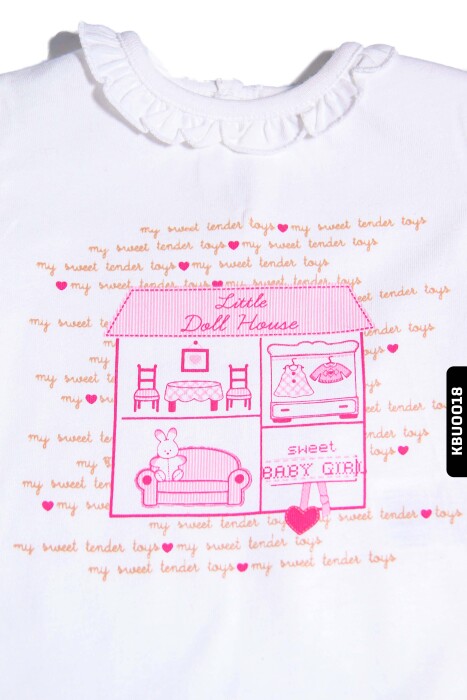 my sweet tender toys my sweet tender toys
my sweet tender toys my sweet tender toys
my sweet tender toys my sweet tender toys
my sweet tender toys my sweet tender toys
Little
Doll House
my sweet te
ender toys
my sweet tender
tender toys
my
toys
my sweet
toys
my
my sweet te
tender toys
sweet
BABY GIRL
my
toys
my sweet
my
my sweet tender toy
y sweet tender toys
my sweet tender toys my sweet tender toys
my sweet tender toys my sweet tender toys
KBU0018